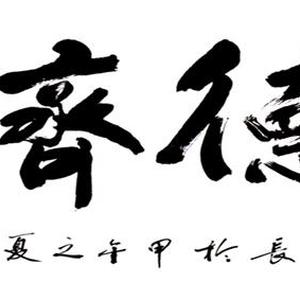 德齊
長於甲午之夏